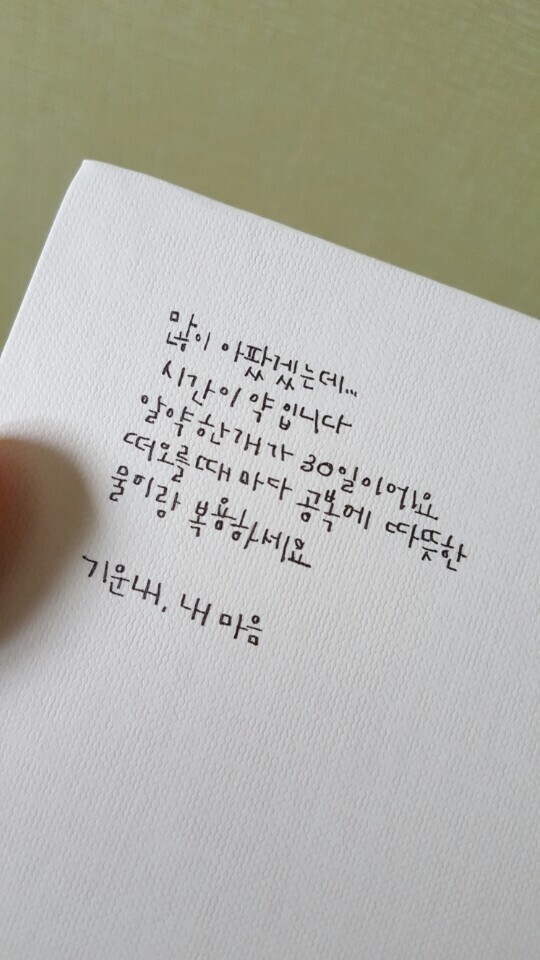 많이 아팠겠는데...
시간이 약 입니다
알약 한개가 30일이에요
떠오를때 마다 공복에 따뜻한
물이랑 복용하세요
기운내, 내 마음